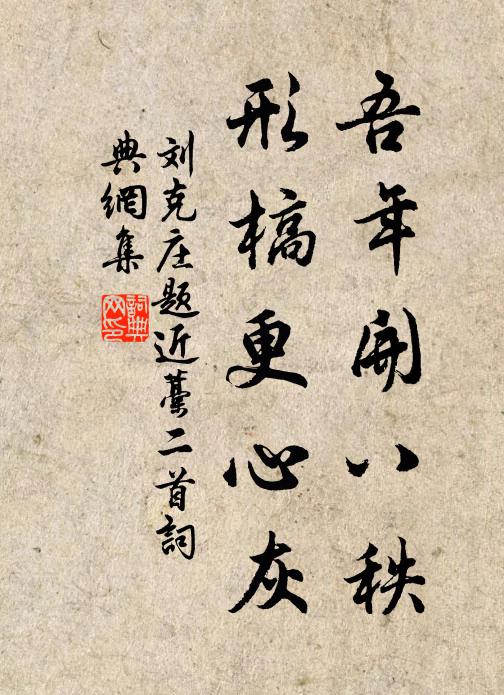 吾年開八秩
形槁更心灰
刘克庄题近藁二首詞
典網集
詞典
网印